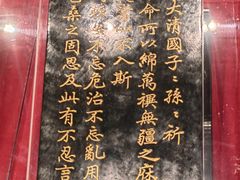 大清國子〻孫〻祈
命可以綿萬禩無疆之庥
不入斯
安不忘危治不忘亂用
桑之固思及此有不忍言